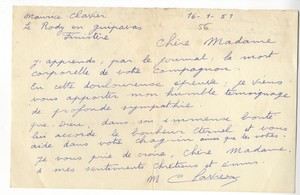 Maurice Clavier
Le Rody en Guipavas
Finistère
16-1-51
56
Chère Madame
J'apprends, par le journal, la mort
corporelle de votre Compagnon.
En cette douloureuse épreuve, je viens
vous apporter mon humble témoignage
de profonde sympathie.
que Dieu, dans son immense bonté
lui accorde le bonheur éternel et vous
aide dans votre chagrin
Je vous prie de croire, Chère Madame,
à mes sentiments chrétiens et émus.
M Clavier